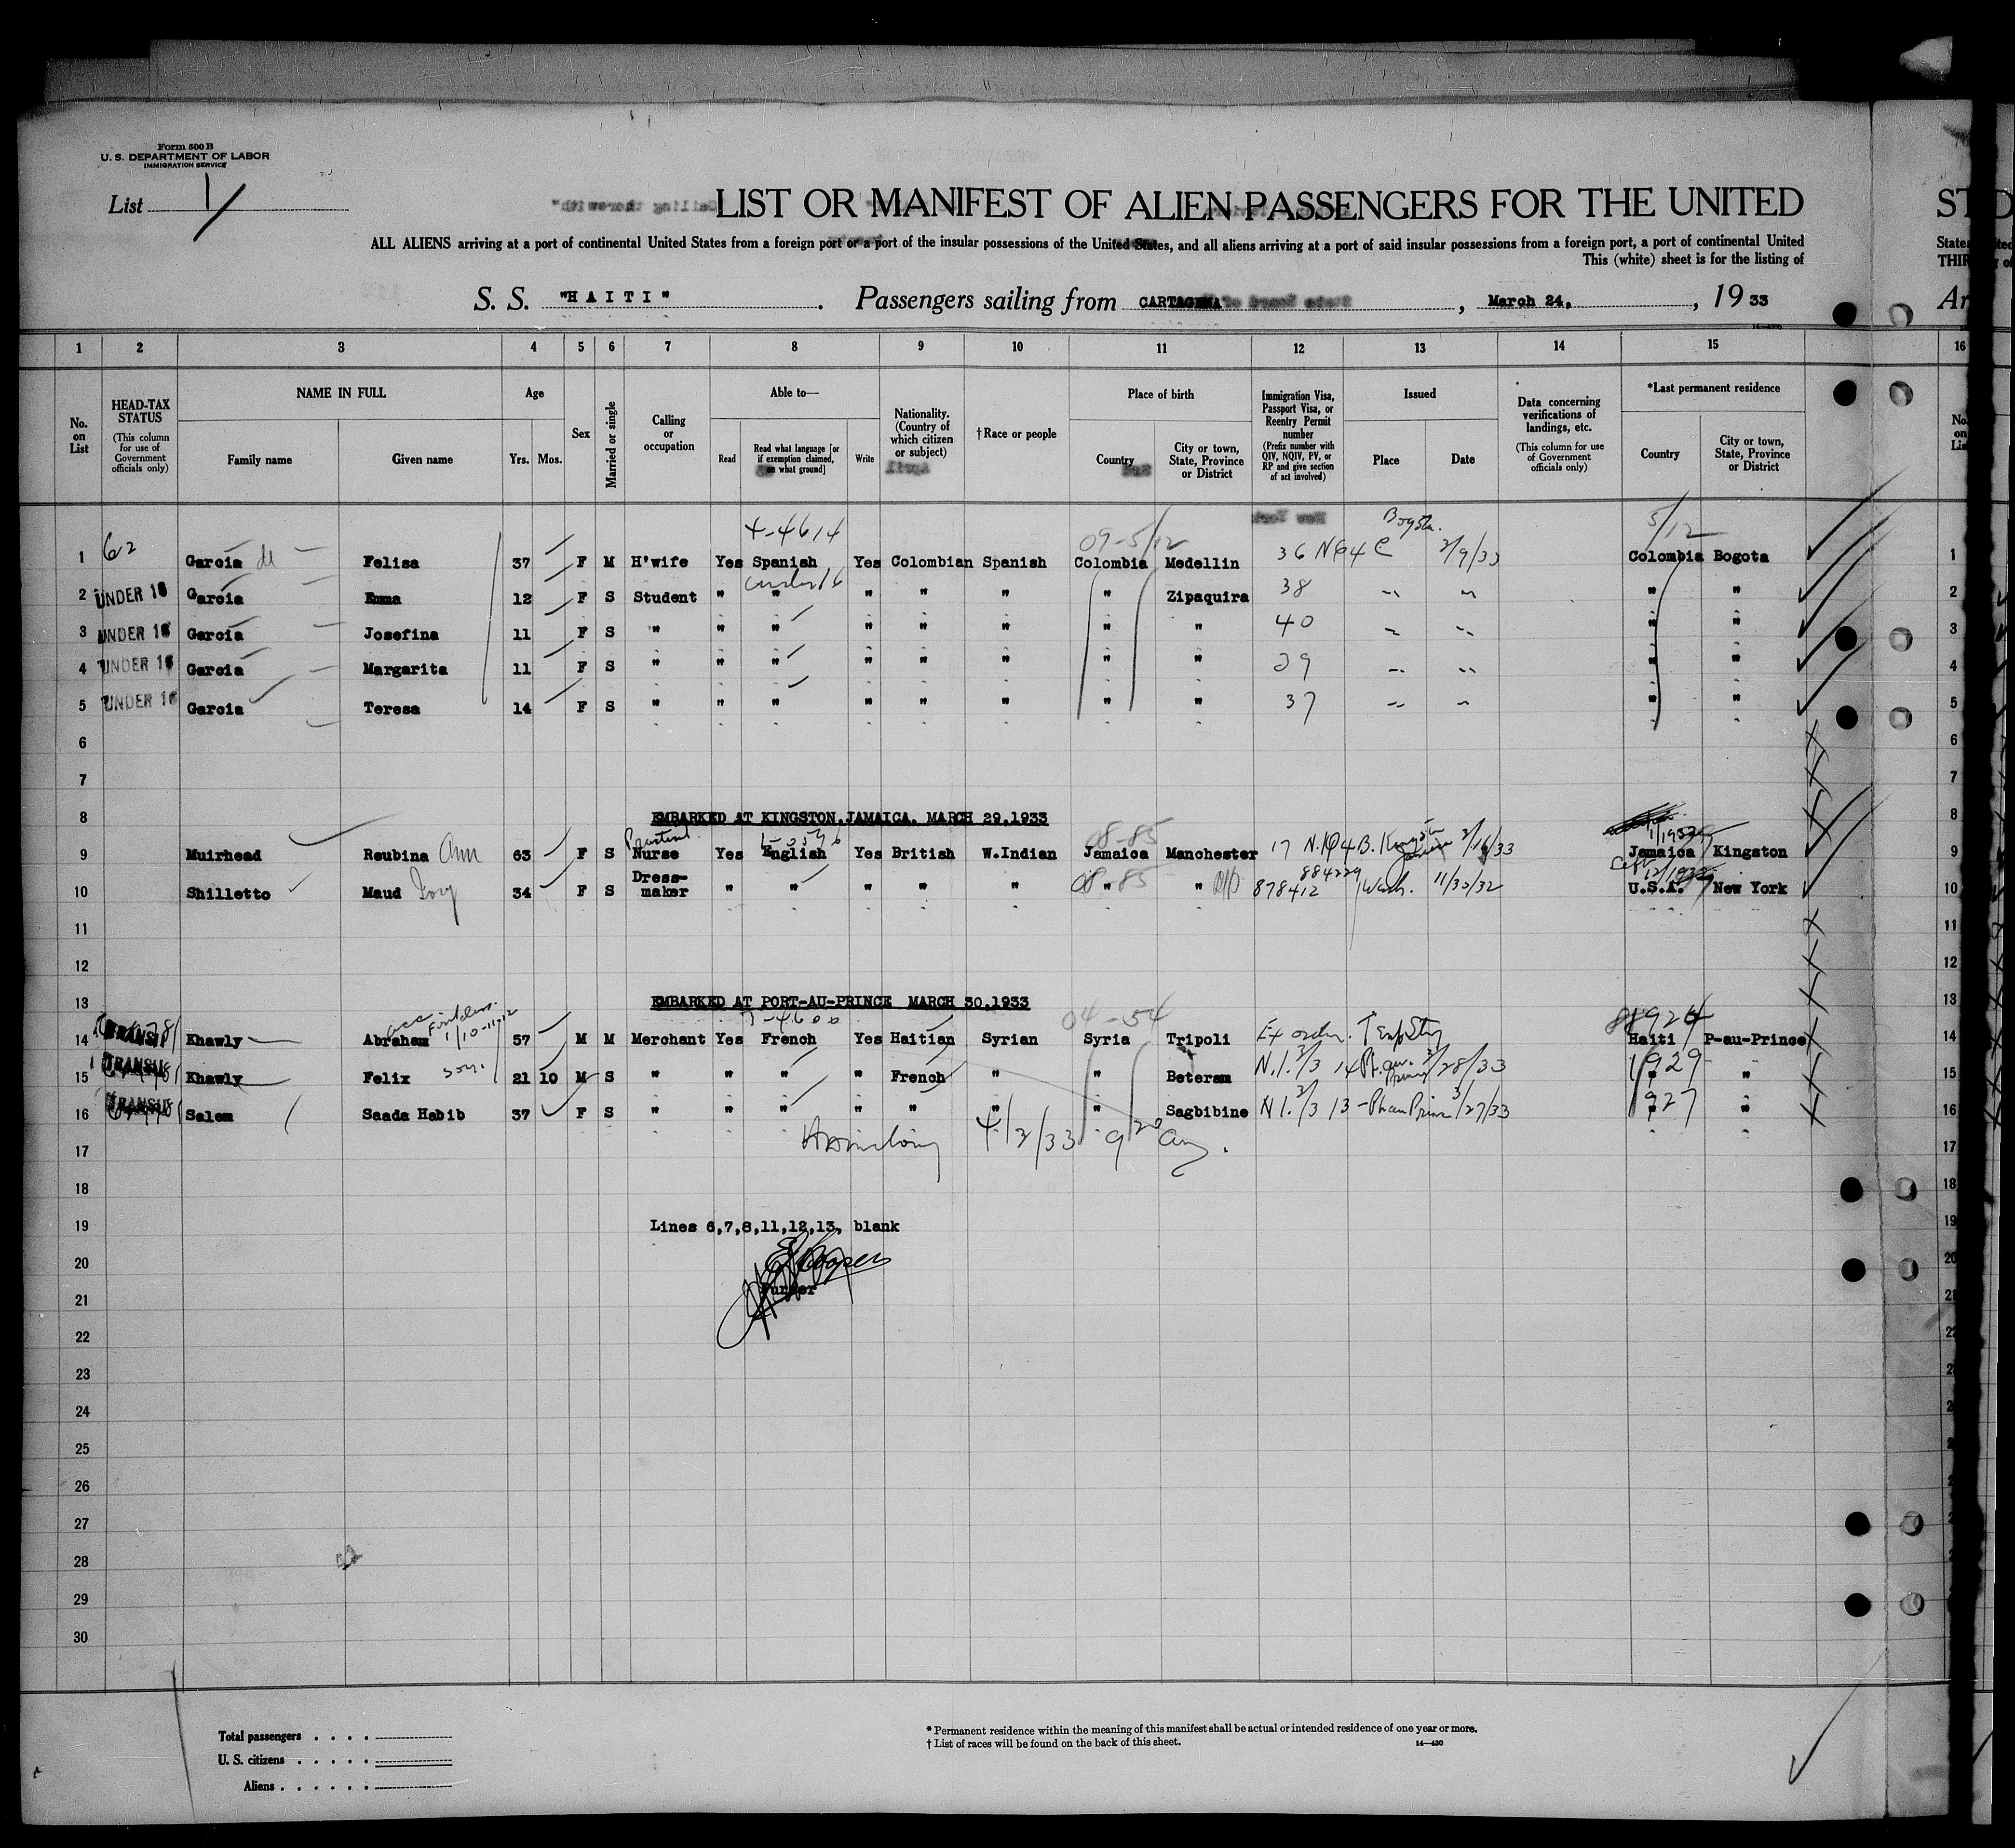 Form 500 B
U. S. DEPARTMENT OF LABOR
IMMIGRATION SERVICE
List 1
LIST OR MANIFEST OF ALIEN PASSENGERS FOR THE UNITED
ALL ALIENS arriving at a port of continental United States from a foreign port or a port of the insular possessions of the United States, and all aliens arriving at a port of said insular possessions from a foreign port, a port of continental United
This (white) sheet is for the listing of
S. S. "HAITI". Passengers sailing from CARTAGENA, March 24, 1933
1 2 3 4 5 6 7 8 9 10 11 12 13 14 15 16
No. on List
HEAD-TAX STATUS (This column for use of Government officials only)
NAME IN FULL Family name Given name
Age Yrs. Mos.
Sex
Married or single
Calling or occupation
Able to— Read Read what language [or if exemption claimed, on what ground] Write
Nationality. (Country of which citizen or subject)
†Race or people
Place of birth Country City or town, State, Province or District
Immigration Visa, Passport Visa, or Reentry Permit number (Prefix number with QIV, NQIV, PV, or RP and give section of act involved)
Issued Place Date
Data concerning verifications of landings, etc. (This column for use of Government officials only)
*Last permanent residence Country City or town, State, Province or District
4-4614 09-5/12 5/12
1 62 Garcia de Felisa 37 F M H'wife Yes Spanish Yes Colombian Spanish Colombia Medellin 36 Bogota. 2/9/33 Colombia Bogota 1
under 16
2 UNDER 16 Garcia Emma 12 F S Student " " " " " " Zipaquira 38 " " " " 2
3 UNDER 16 Garcia Josefina 11 F S " " " " " " " " 40 " " " " 3
4 UNDER 16 Garcia Margarita 11 F S " " " " " " " " 39 " " " " 4
5 UNDER 16 Garcia Teresa 14 F S " " " " " " " " 37 " " " " 5
6 6
7 7
8 EMBARKED AT KINGSTON,JAMAICA. MARCH 29,1933
08-85
9 Muirhead Reubina Ann 63 F S Nurse Yes English Yes British W.Indian Jamaica Manchester 17 2/16/33 Jamaica Kingston 9
884229
10 Shilletto Maud Ivy 34 F S Dress-maker " " " " " 08-85 " " 878412 Wash. 11/30/32 U.S.A. New York 10
11 11
12 12
13 EMBARKED AT PORT-AU-PRINCE MARCH 30,1933 13
04-54
14 TRANSIT Khawly Abraham 57 M M Merchant Yes French Yes Haitian Syrian Syria Tripoli Haiti P-au-Prince 14
15 TRANSIT Khawly Felix son. 21 10 M S " " " " French " " Beteram N.I. 3/3 14 3/28/33 1929 " " 15
16 TRANSIT Salem Saada Habib 37 F S " " " " " " " Sagbibine N I. 3/3 13 3/27/33 1927 " " 16
4/2/33 9 20 am.
17
18 18
19 Lines 6,7,8,11,12,13, blank 19
20 Cooper 20
21 Purser 21
22
23
24
25
26
27
28
29
30
Total passengers
U. S. citizens
Aliens
* Permanent residence within the meaning of this manifest shall be actual or intended residence of one year or more.
† List of races will be found on the back of this sheet. 14—430